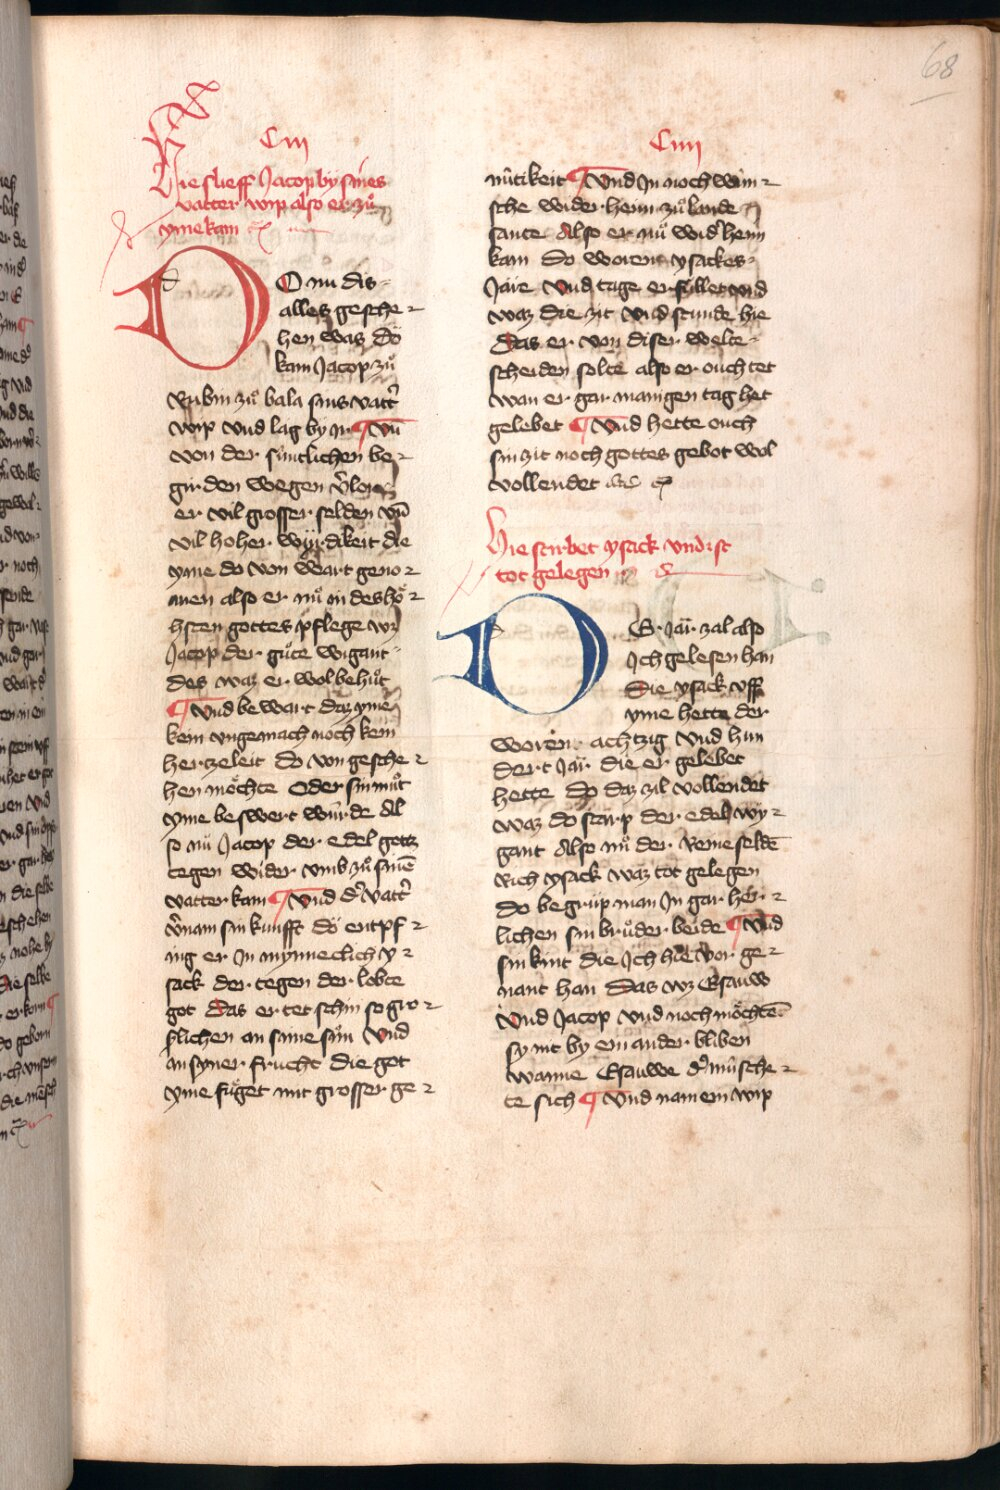 68
Ciij
Hie slieff Jacop by sines
vatter wip also er zuͦ
yme kam
DO nu dis
alles gesche
hen was do
kam Jacop zuͦ
Rubin zuͦ bala sins vatt̕
wip vnd lag by ir ¶ Vn̄
von der súntlichen be
girden wegen v̕lor
er vil grosser selden vn̄
vil hoher wirdikeit die
yme do von wart geno
men also er nuͦ in des hoͤ
hsten gottes pflege wz
Jacop der guͦte wigant
des waz er wol behuͦt
¶ Vnd bewart daz yme
kein vngemach noch kein
hertzeleit do von gesche
hen moͤchte Oder sin muͦt
yme beswert wúrde Al
so nuͦ Jacop der edel gottz
tegen wider vmb zuͦ sinē
vatter kam ¶ Vnd d̕ vatt̕
v̕nam sin kunfft do entpf
ing er in mynneclich y
sack der tegen der lobte
got das er tet schin so gro
slichen an sime sun Vnd
an syner frucht die got
yme fuͦget mit grosser ge
Ciiij
mútikeit ¶ Vnd In noch wún
sche wider heim zuͦ lande
sante Also er nuͦ wid̕ heim
kam do woren ysackes
Jare vnd tage erfúllet vnd
waz die zit vnd stunde hie
das er von diser welte
scheiden solte also er ouch tet
wan er gar manigen tag het
gelebet ¶ Vnd hette ouch
sin zit noch gottes gebot wol
vollendet
Hie stirbet ysack vnd ist
tot gelegen
DEr Jar zal also
Ich gelesen han
Die ysack vff
yme hette der
woren achtzig vnd hun
dert Jar die er gelebet
hette do daz zil vollendet
waz do starp der edel wy
gant Also nuͦ der Reine selde
Rich ysack waz tot gelegen
do begruͦp man In gar her
lichen sin bruͦder beide ¶ Vnd
sin kint die Ich hie vor ge
nant han Das wz Esauw
Vnd Jacop vnd noch moͤchtē
sy nit by ein ander bliben
wanne Esauwe d̕ músche
te sich ¶ Vnd nam ein wip